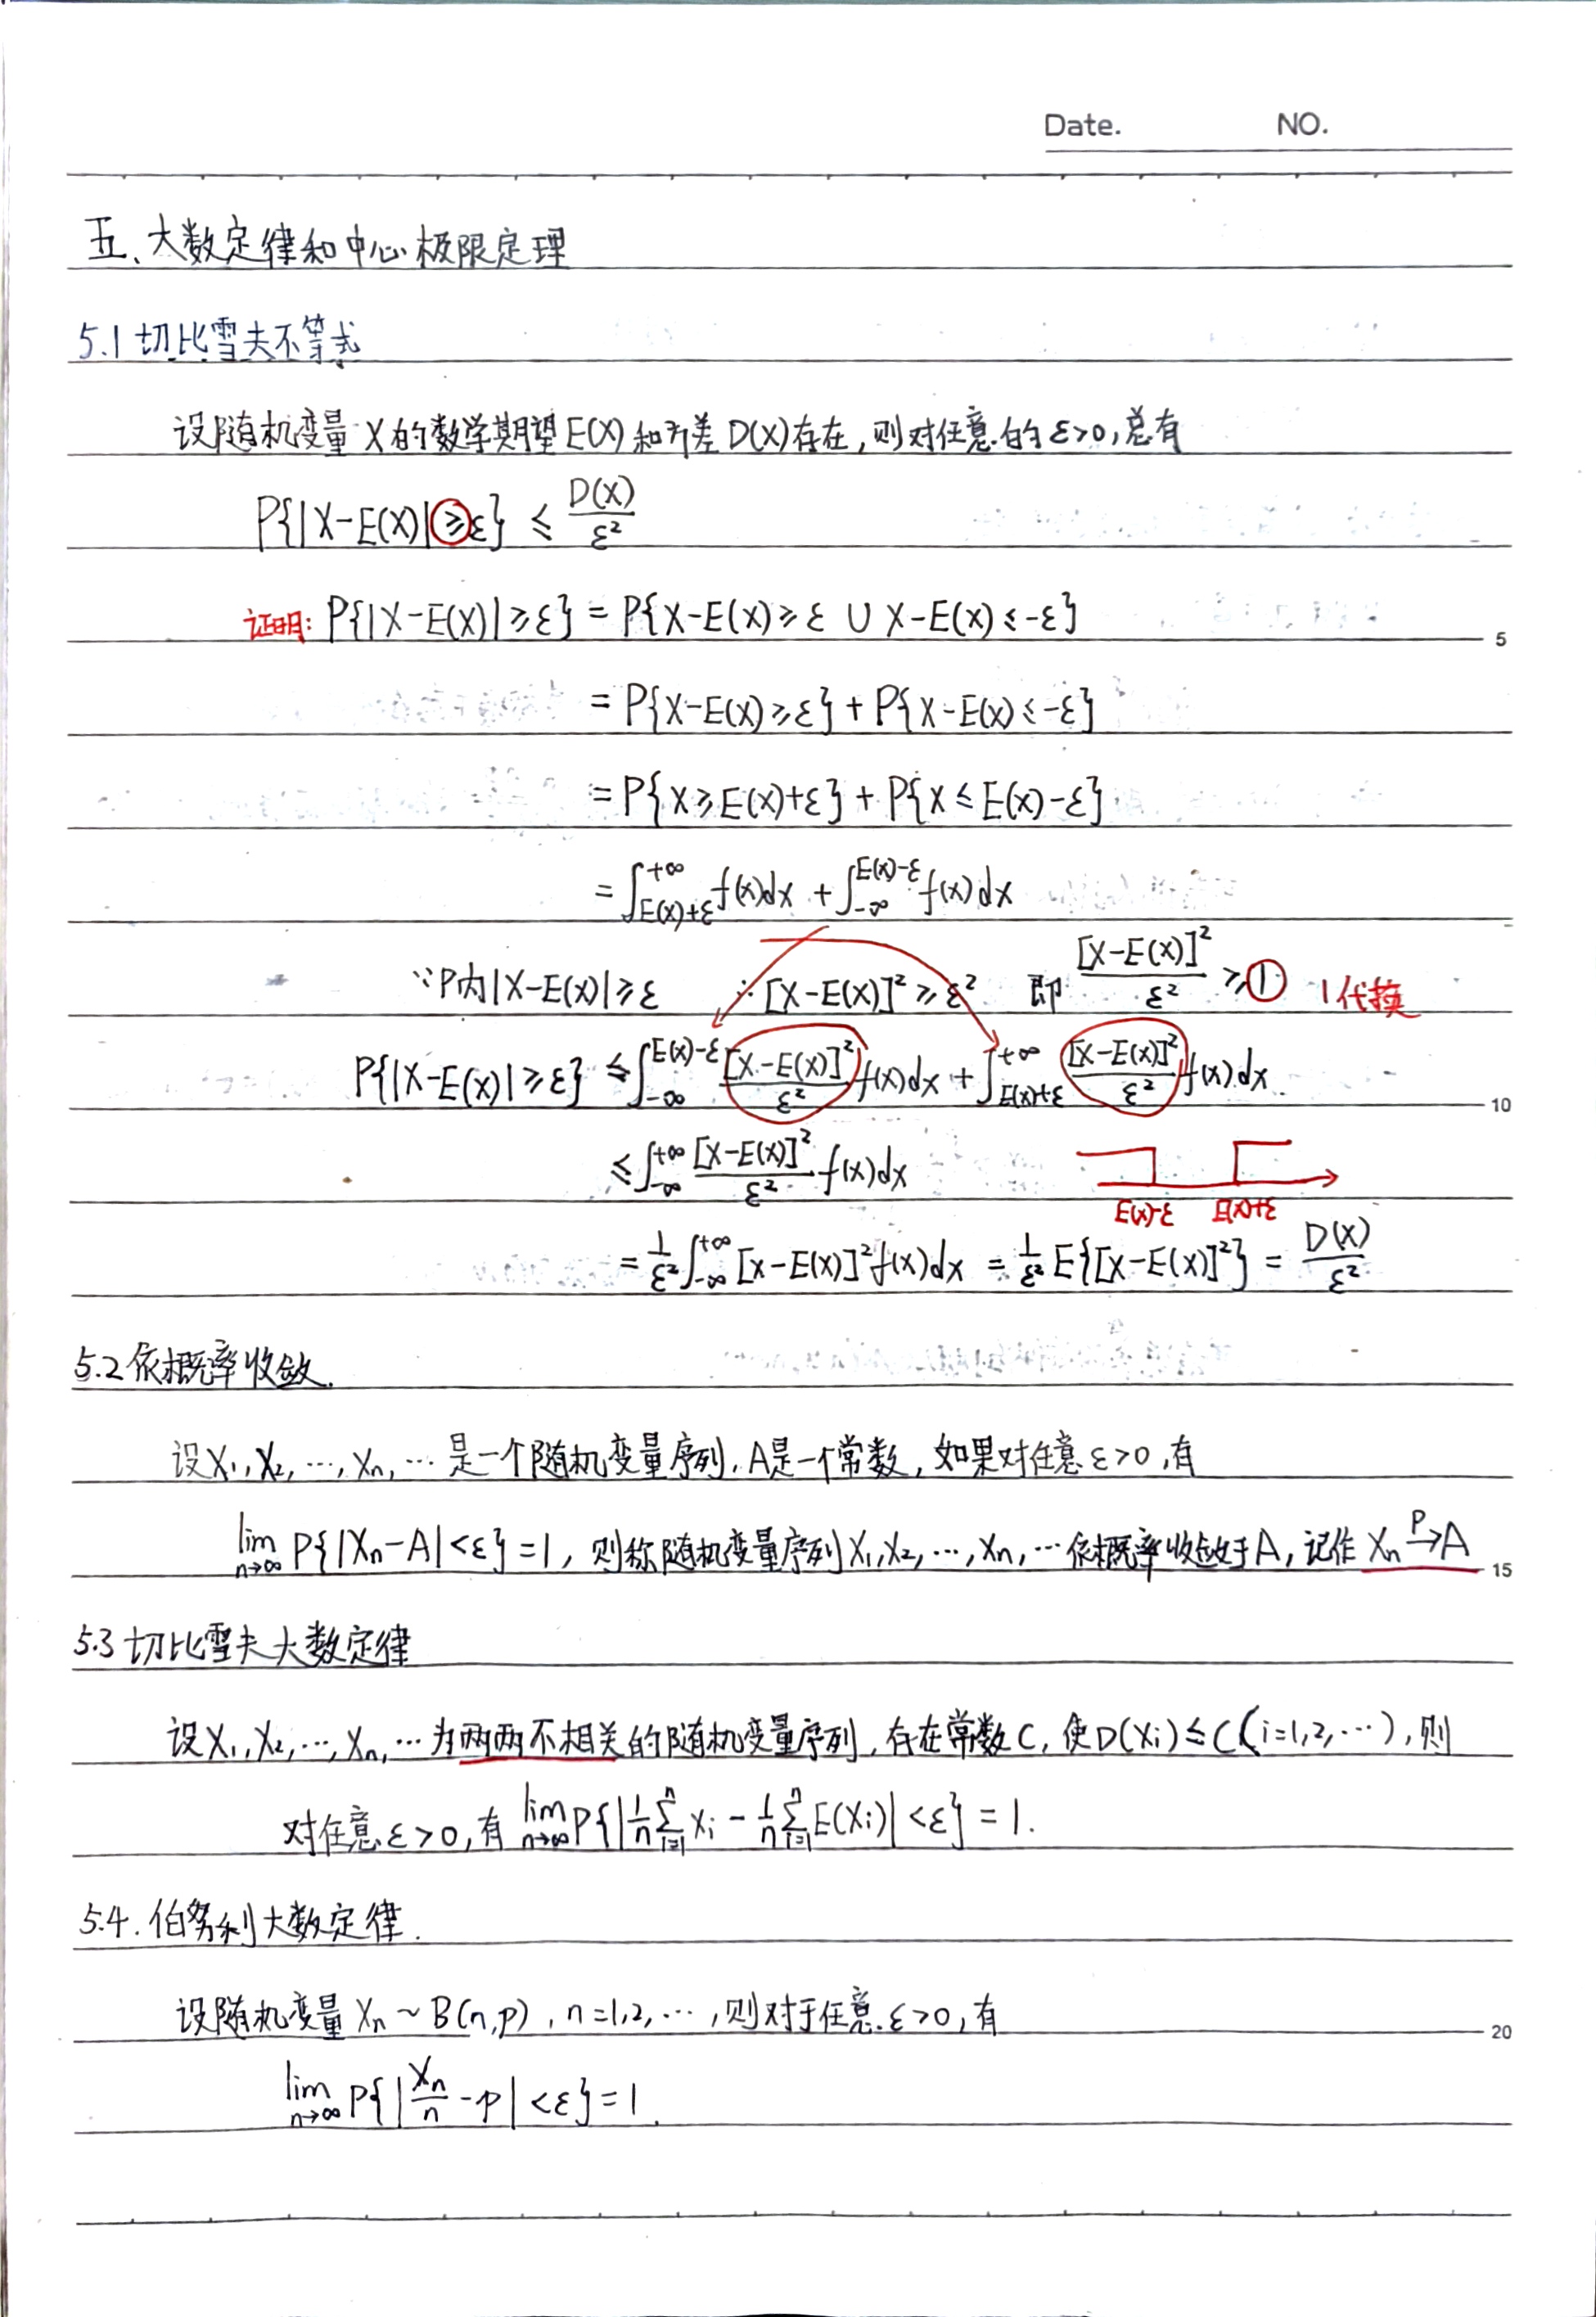 Date. NO.
五、大数定律和中心极限定理
5.1 切比雪夫不等式
设随机变量 X 的数学期望 E(X) 和方差 D(X) 存在，则对任意的 ε>0，总有
P{|X-E(X)|≥ε} ≤ D(X)/ε²
证明: P{|X-E(X)|≥ε} = P{X-E(X)≥ε ∪ X-E(X)≤-ε}
5
= P{X-E(X)≥ε} + P{X-E(X)≤-ε}
= P{X≥E(X)+ε} + P{X≤E(X)-ε}
= ∫_{E(X)+ε}^{+∞} f(x)dx + ∫_{-∞}^{E(X)-ε} f(x)dx
∵P内|X-E(X)|≥ε ∴[X-E(X)]²≥ε² 即 [X-E(X)]²/ε² ≥① 1代换
P{|X-E(X)|≥ε} ≤ ∫_{-∞}^{E(X)-ε} [X-E(X)]²/ε² f(x)dx + ∫_{E(X)+ε}^{+∞} [X-E(X)]²/ε² f(x)dx.
10
≤ ∫_{-∞}^{+∞} [X-E(X)]²/ε² f(x)dx
E(X)-ε E(X)+ε
= 1/ε² ∫_{-∞}^{+∞} [X-E(X)]² f(x)dx = 1/ε² E{[X-E(X)]²} = D(X)/ε²
5.2 依概率收敛.
设X₁, X₂, ⋯, Xₙ, ⋯ 是一个随机变量序列, A是一个常数, 如果对任意 ε>0, 有
lim_{n→∞} P{|Xₙ-A|<ε}=1, 则称随机变量序列 X₁,X₂,⋯,Xₙ,⋯ 依概率收敛于A, 记作 Xₙ \xrightarrow{P} A
15
5.3 切比雪夫大数定律
设X₁, X₂, ⋯, Xₙ, ⋯ 为两两不相关的随机变量序列, 存在常数C, 使D(Xi)≤C(i=1,2,⋯), 则
对任意 ε>0, 有 lim_{n→∞} P{|1/n ∑_{i=1}^{n} Xi - 1/n ∑_{i=1}^{n} E(Xi)|<ε} = 1.
5.4. 伯努利大数定律.
设随机变量 Xₙ ~ B(n,p), n=1,2,⋯, 则对于任意 ε>0, 有
20
lim_{n→∞} P{|Xₙ/n - p|<ε}=1.